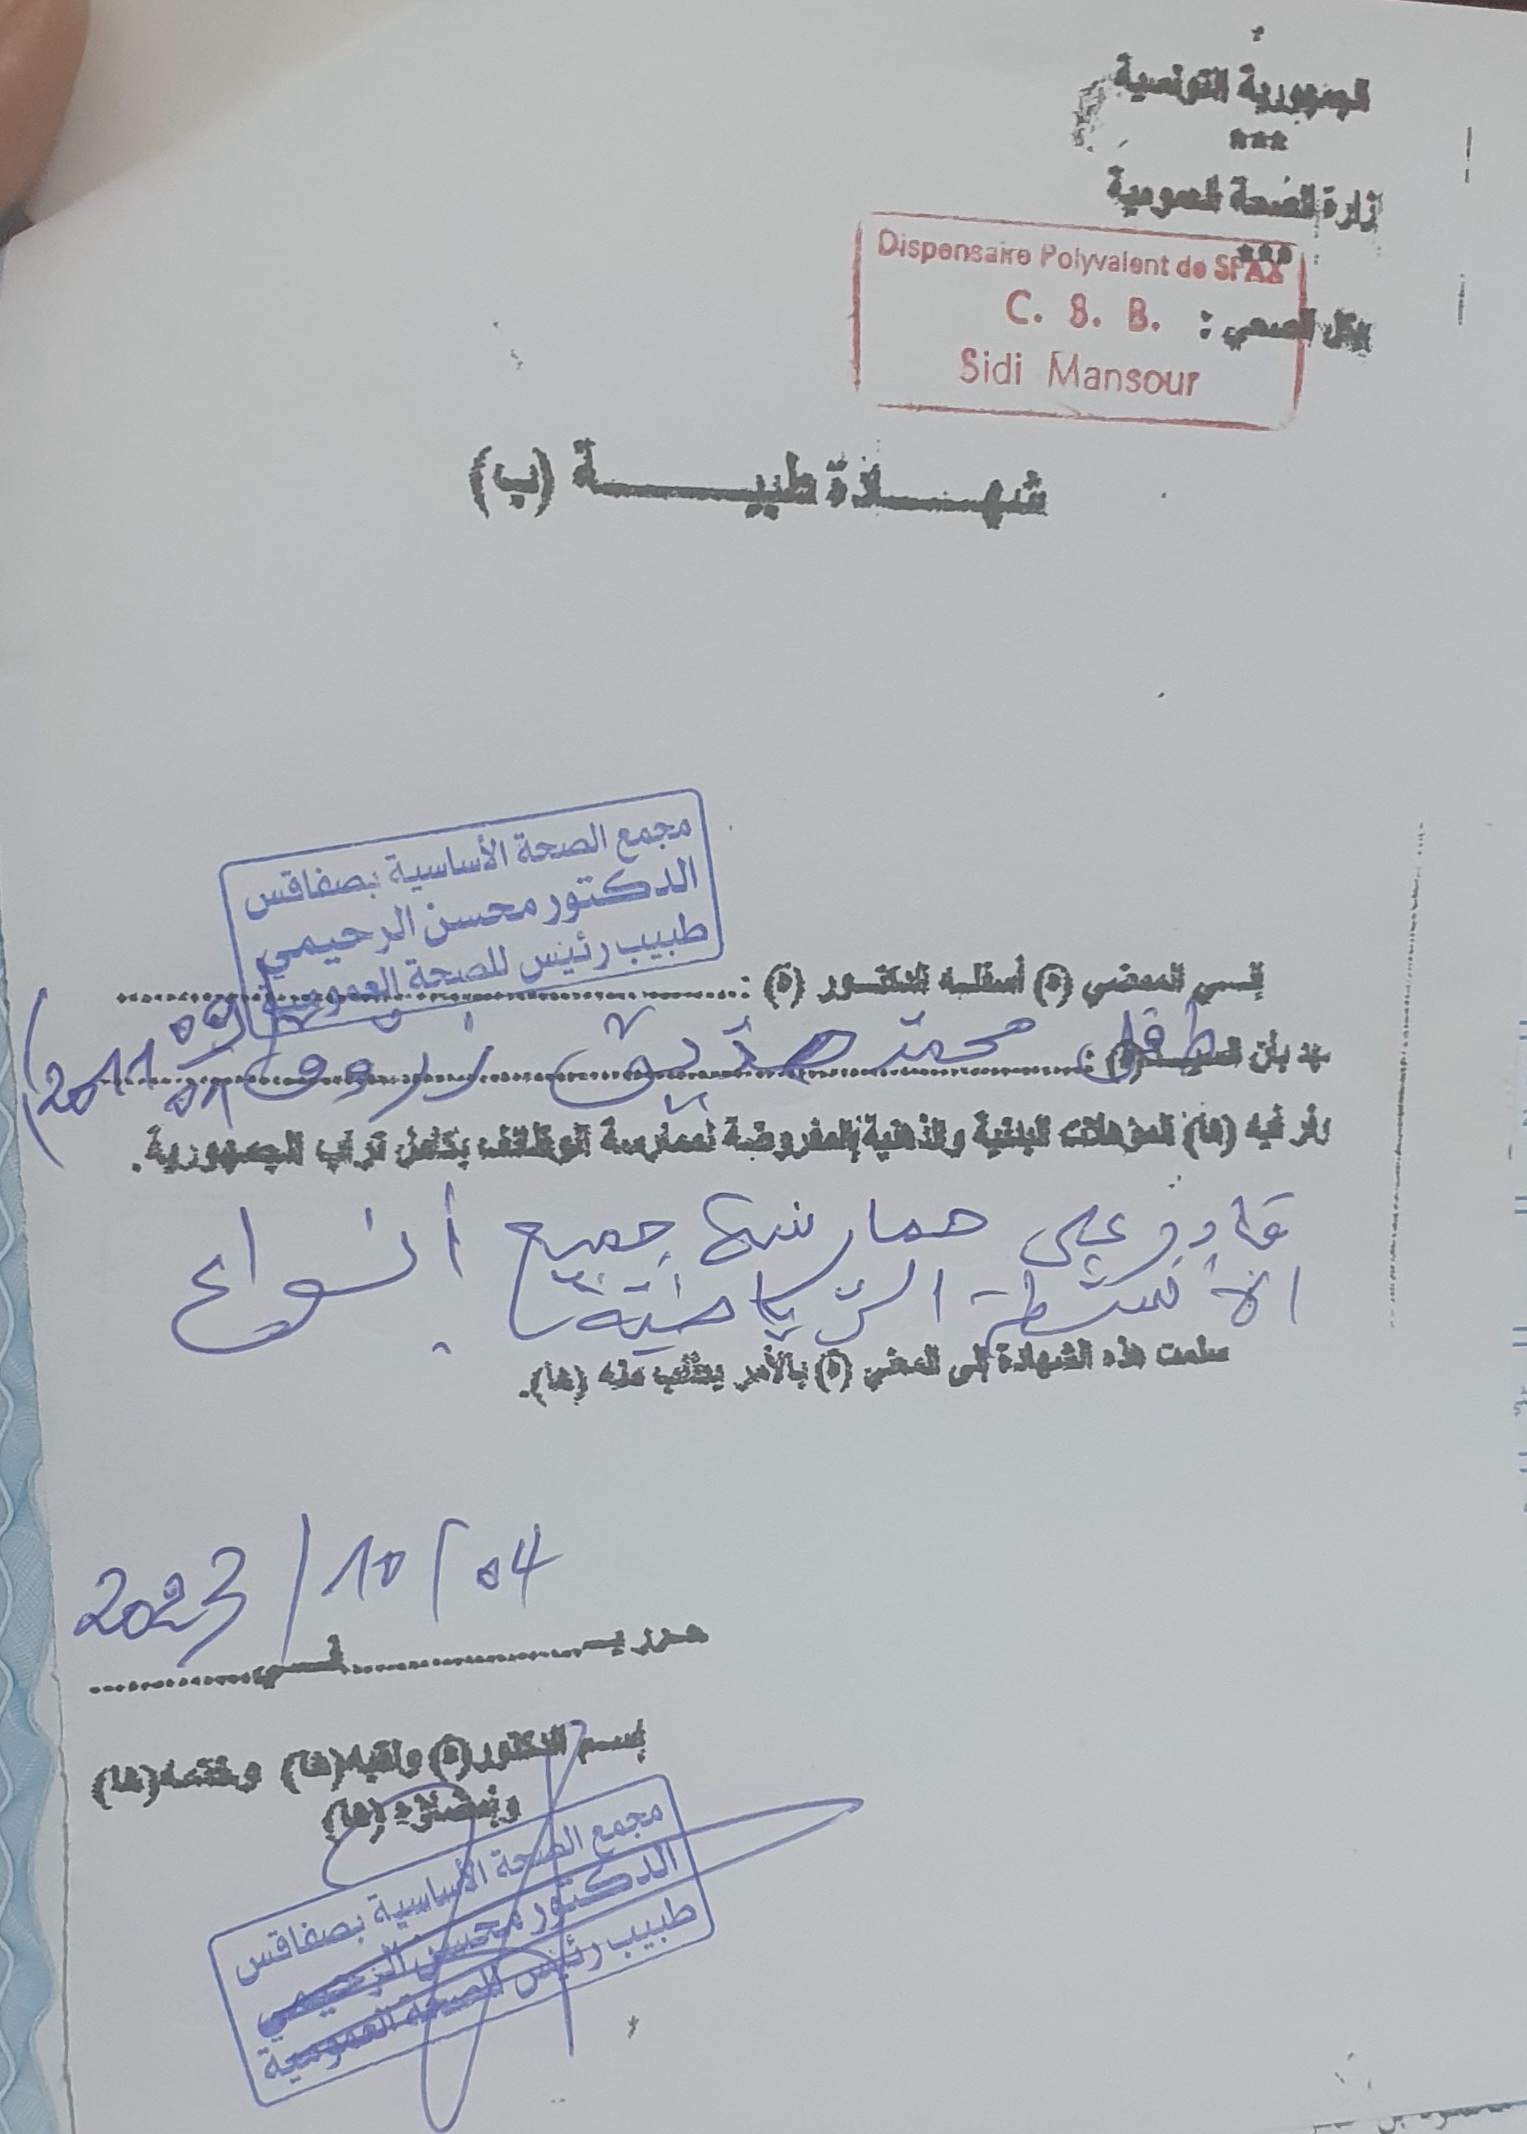 الجمهورية التونسية
***
زارة الصحة العمومية
***
Dispensaire Polyvalent de SFAX
يكل الصحي : C. S. B.
Sidi Mansour
شهـــادة طبيـــــة (ب)
مجمع الصحة الأساسية بصفاقس
الدكتور محسن الرحيمي
طبيب رئيس للصحة العمومية
الممضي (ة) أسفله الدكتور (ة) :
بأن طفل محمد صديق زروق
2011
فر فيه (ها) المؤهلات البدنية والذهنية المفروضة لممارسة الوظائف بكامل تراب الجمهورية.
قادر على ممارسة جميع أنواع
الأنشطة الرياضية
سلمت هذه الشهادة إلى المعني (ة) بالأمر بطلب منه (ها).
04 / 10 / 2023
حرر بـ......................في......................
إسم الدكتور(ة) ولقبه(ها) وختمه(ها)
وإمضاؤه (ها)
مجمع الصحة الأساسية بصفاقس
الدكتور محسن الرحيمي
طبيب رئيس للصحة العمومية